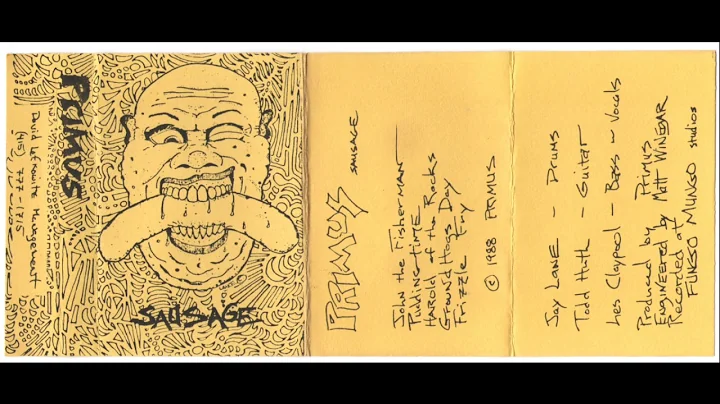 PRIMUS
David Lefkowitz Management
(415) 777-1715
SAUSAGE
PRIMUS SAUSAGE
John the Fisherman
Pudding Time
Harold of the Rocks
Ground Hogs Day
Frizzle Fry
© 1988 PRIMUS
Jay Lane - Drums
Todd Huth - Guitar
Les Claypool - Bass ~ Vocals
Produced by Primus
Engineered by Matt WINEGAR
Recorded at
FUNGO MUNGO studios